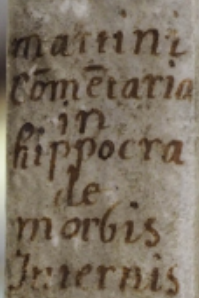 martini
Cōmētaria
in
hippocra
de
morbis
Internis